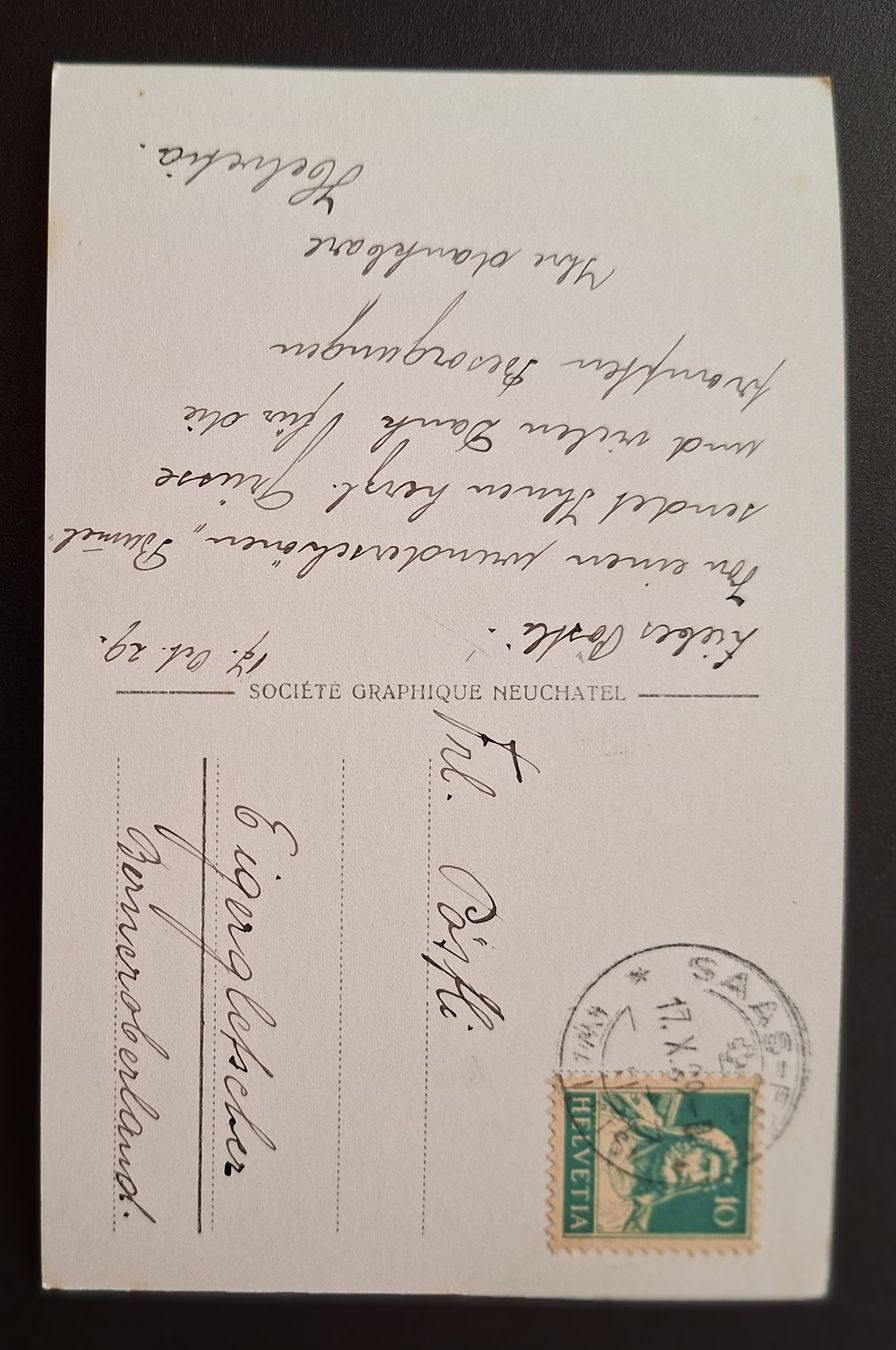 17. Oct. 29.
Liebes Pöstli!
Von einen wunderschönen „Bumel"
sendet Ihnen herzl. Grüsse
und vielen Dank für die
prompten Besorgungen
Ihre dankbare
Helvetia.
SOCIÉTÉ GRAPHIQUE NEUCHATEL
Frl. Pöstli
Eigergletscher
Berneroberland.
SAAS-F
17.X.29
HELVETIA
10